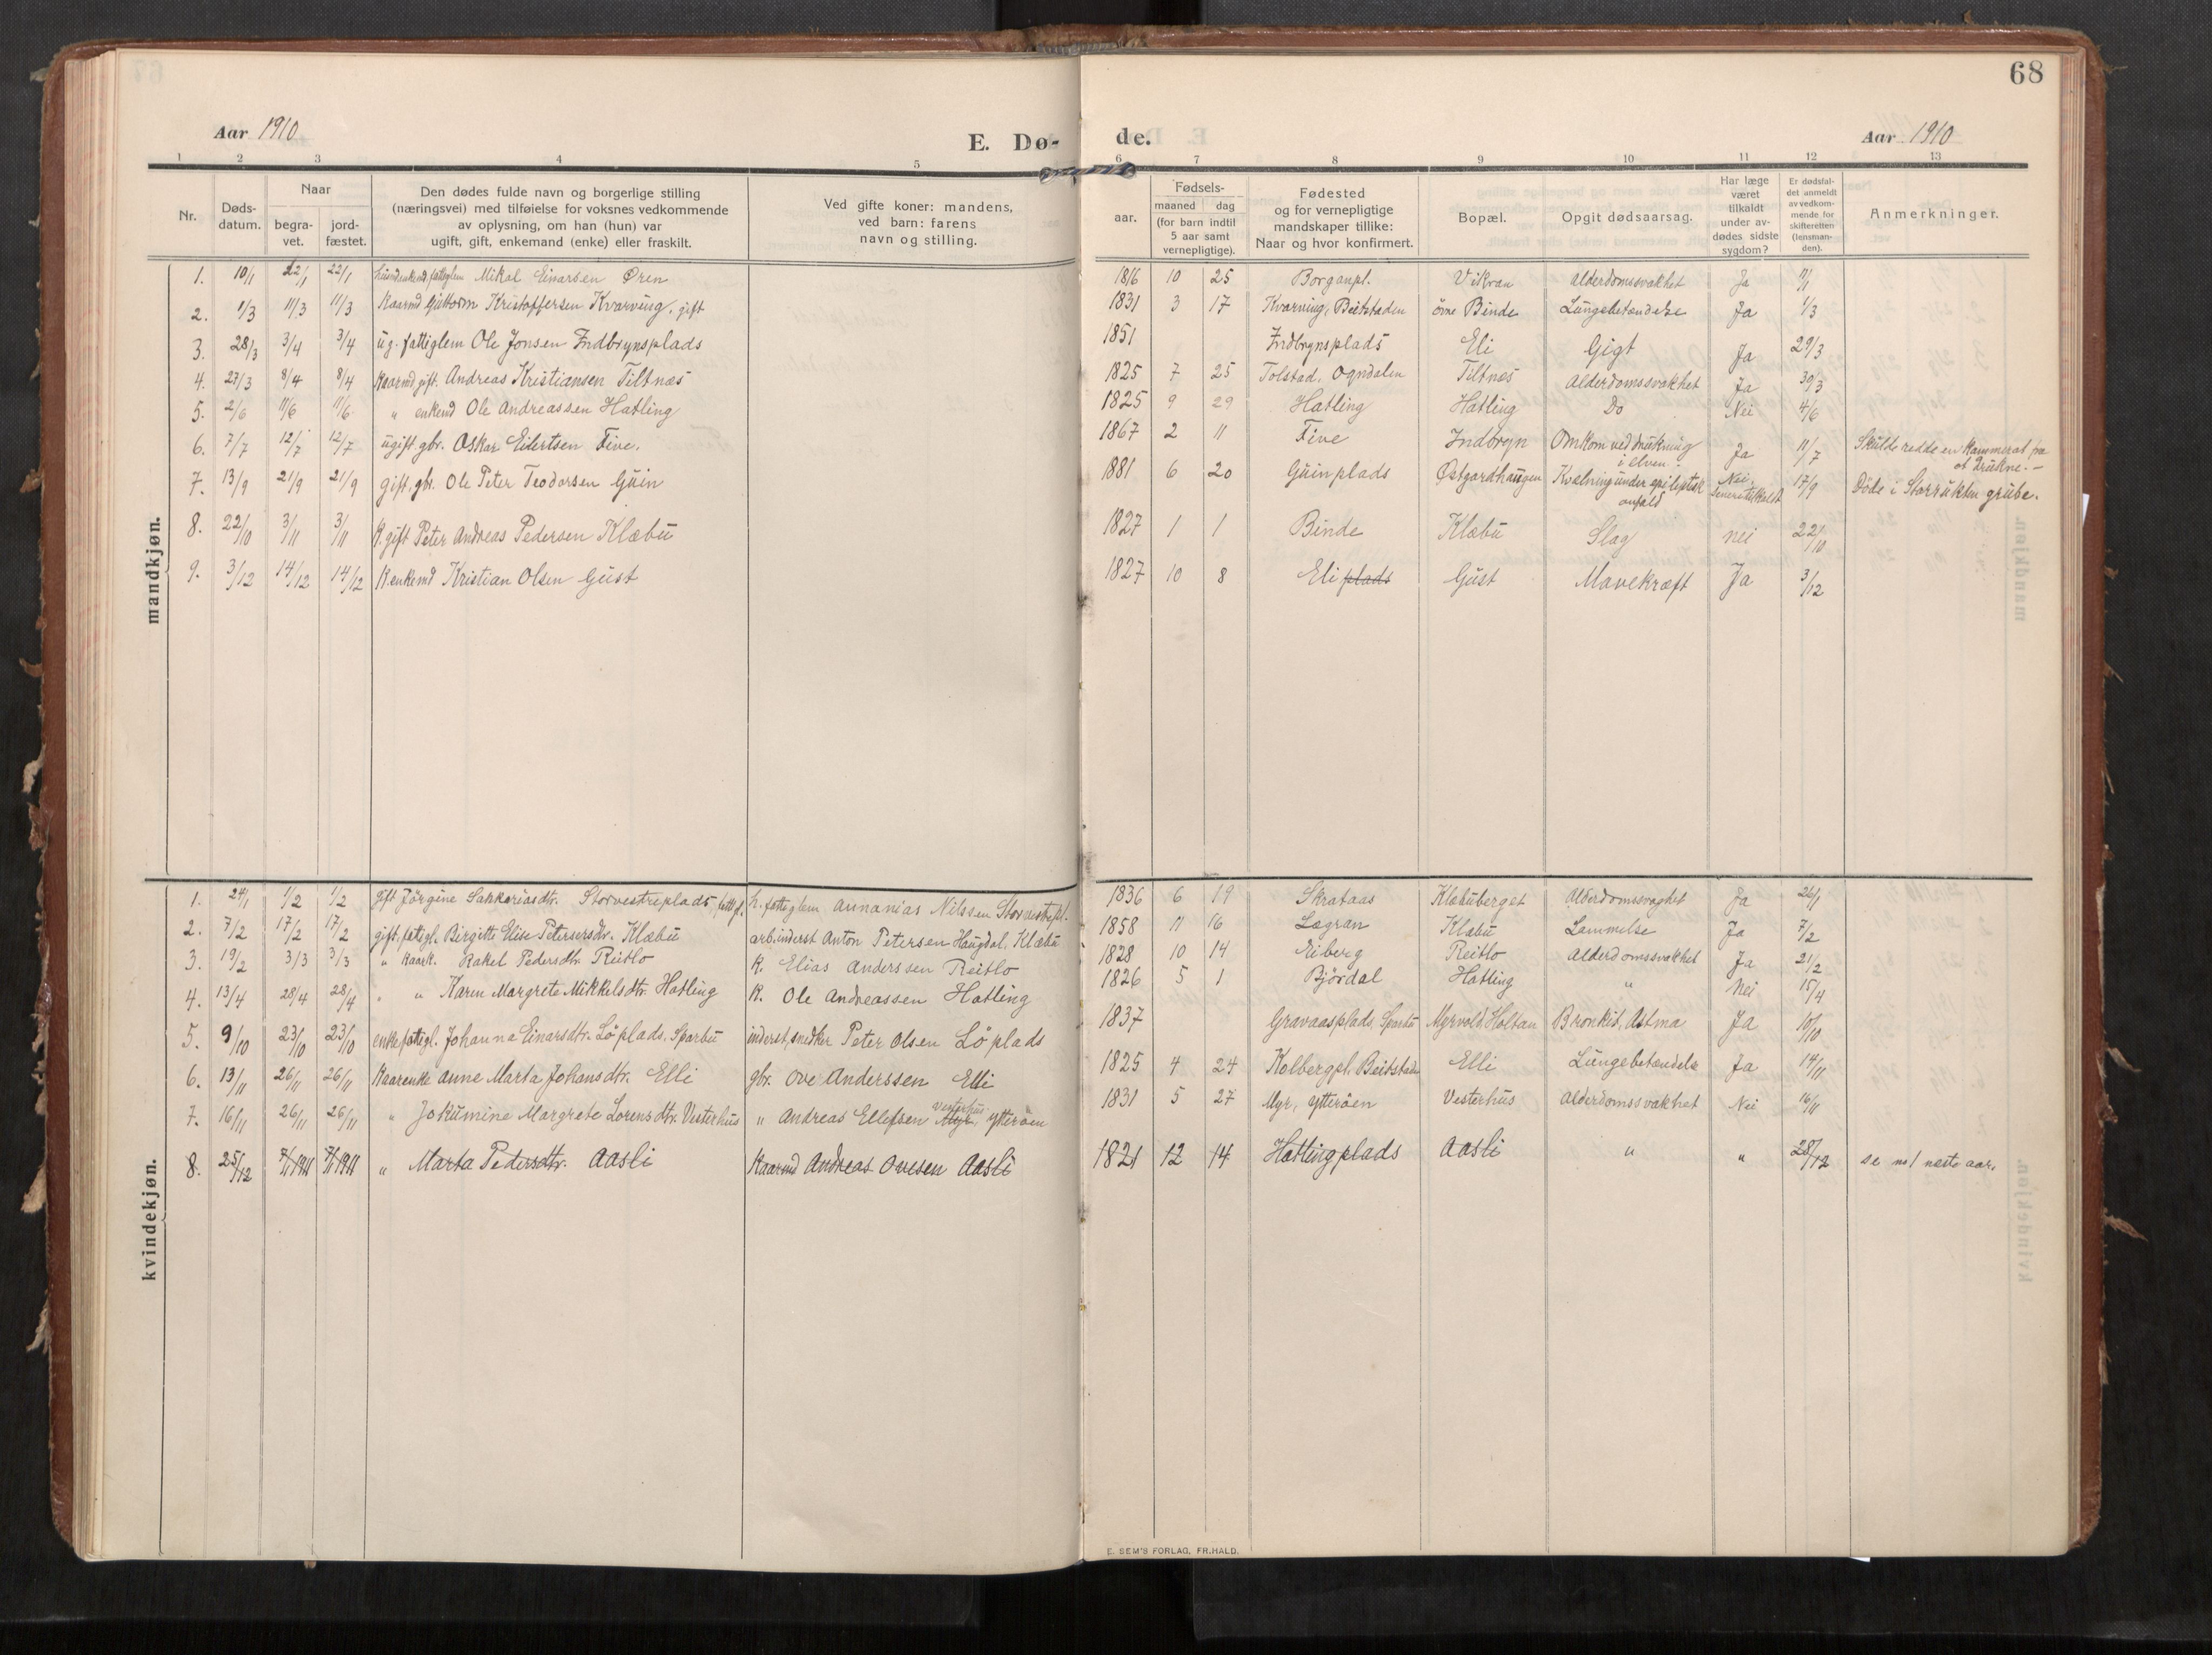 68
Aar 1910
E. Dø-
de.
Aar 1910
1 2 3 4 5 6 7 8 9 10 11 12 13
Nr.
Døds-
datum.
Naar
begra-
vet.
jord-
fæstet.
Den dødes fulde navn og borgerlige stilling
(næringsvei) med tilføielse for voksnes vedkommende
av oplysning, om han (hun) var
ugift, gift, enkemand (enke) eller fraskilt.
Ved gifte koner: mandens,
ved barn: farens
navn og stilling.
aar.
Fødsels-
maaned dag
(for barn indtil
5 aar samt
vernepligtige).
Fødested
og for vernepligtige
mandskaper tillike:
Naar og hvor konfirmert.
Bopæl.
Opgit dødsaarsag.
Har læge
været
tilkaldt
under av-
dødes sidste
sygdom?
Er dødsfal-
det anmeldt
av vedkom-
mende for
skifteretten
(lensman-
den).
Anmerkninger.
mandkjøn.
1. 10/1 22/1 22/1 Mikal Einarsen Øren 1816 10 25 Borganpl. Vikvan Alderdomssvakhet Ja 11/1
2. 1/3 11/3 11/3 Kaarmd Guttorm Kristoffersen Kvarving, gift 1831 3 17 Kvarving, Beitstaden övre Binde Lungebetændelse Ja 1/3
3. 28/3 3/4 3/4 ug. fattiglem Ole Jonsen Indbrynsplads 1851 Indbrynsplads Eli Gigt Ja 29/3
4. 27/3 8/4 8/4 Kaarmd gift. Andreas Kristiansen Tiltnes 1825 7 25 Tolstad, Ogndalen Tiltnes Alderdomssvakhet Ja 30/3
5. 2/6 11/6 11/6 " enkemd Ole Andreassen Hatling 1825 9 29 Hatling Hatling Do Nei 4/6
6. 7/7 12/7 12/7 ugift. gbr. Oskar Eilertsen Five. 1867 2 11 Five Indbryn Omkom ved drukning i elven. Ja 11/7 Skulde redde en kammerat fra at drukne. -
7. 13/9 21/9 21/9 gift, gbr. Ole Peter Teodorsen Guin 1881 6 20 Guinplads Østgardhaugen Kvælning under epileptisk anfald Nei, 17/9 Döde i grube.
8. 22/10 3/11 3/11 K. gift Peter Andreas Pedersen Klæbu 1827 1 1 Binde Klæbu Slag nei 22/10
9. 3/12 14/12 14/12 K. enkemd Kristian Olsen Gust 1827 10 8 Eli plads Gust Mavekræft Ja 3/12
kvindekjøn.
1. 24/1 1/2 1/2 gift Jörgine Sakkariasdtr. Storvestreplads, h. fattiglem Annanias Nilssen Storvestrepl. 1836 6 19 Skrataas Klæbuberget Alderdomssvaghet Ja 26/1
2. 7/2 17/2 17/2 gift, fattigl. Birgitte Elise Petersersdtr. Klæbu arb. inderst Anton Petersen Haugdal, Klæbu 1858 11 16 Lægran Klæbu Lammelse Ja 7/2
3. 19/2 3/3 3/3 " Kaark. Rakel Pedersdtr. Reitlo K. Elias Anderssen Reitlo 1828 10 14 Eiberg Reitlo Alderdomssvakhet Ja 21/2
4. 13/4 28/4 28/4 " " Karen Margrete Mikkelsdtr. Hatling K. Ole Andreassen Hatling 1826 5 1 Björdal Hatling " Nei 15/4
5. 9/10 23/10 23/10 enke, fattigl. Johanna Einarsdtr. Löplads, Sparbu inderst, snedker Peter Olsen Löplads 1837 Gravaasplads, Sparbu Myrvold, Holtan Bronkit, Astma Ja 10/10
6. 13/11 26/11 26/11 Kaarenke Anne Marta Johansdtr. Elli gbr. Ove Anderssen Elli 1825 4 24 Kolbergpl. Beitstad Elli Lungebetændelse Ja 14/11
7. 16/11 26/11 26/11 " Jokumine Margrete Lorensdtr. Vesterhus " Andreas Ellefsen Myr, Vesterhus Ytterøen 1831 5 27 Myr, Ytterøen Vesterhus Alderdomssvakhet Nei 16/11
8. 25/12 7/1 1911 7/1 1911 " Marta Pedersdtr. Aasli Kaarmd Andreas Ovesen Aasli 1821 12 14 Hatlingplads Aasli " " 28/12 se no 1 neste aar.
E. SEM'S FORLAG, FR.HALD.